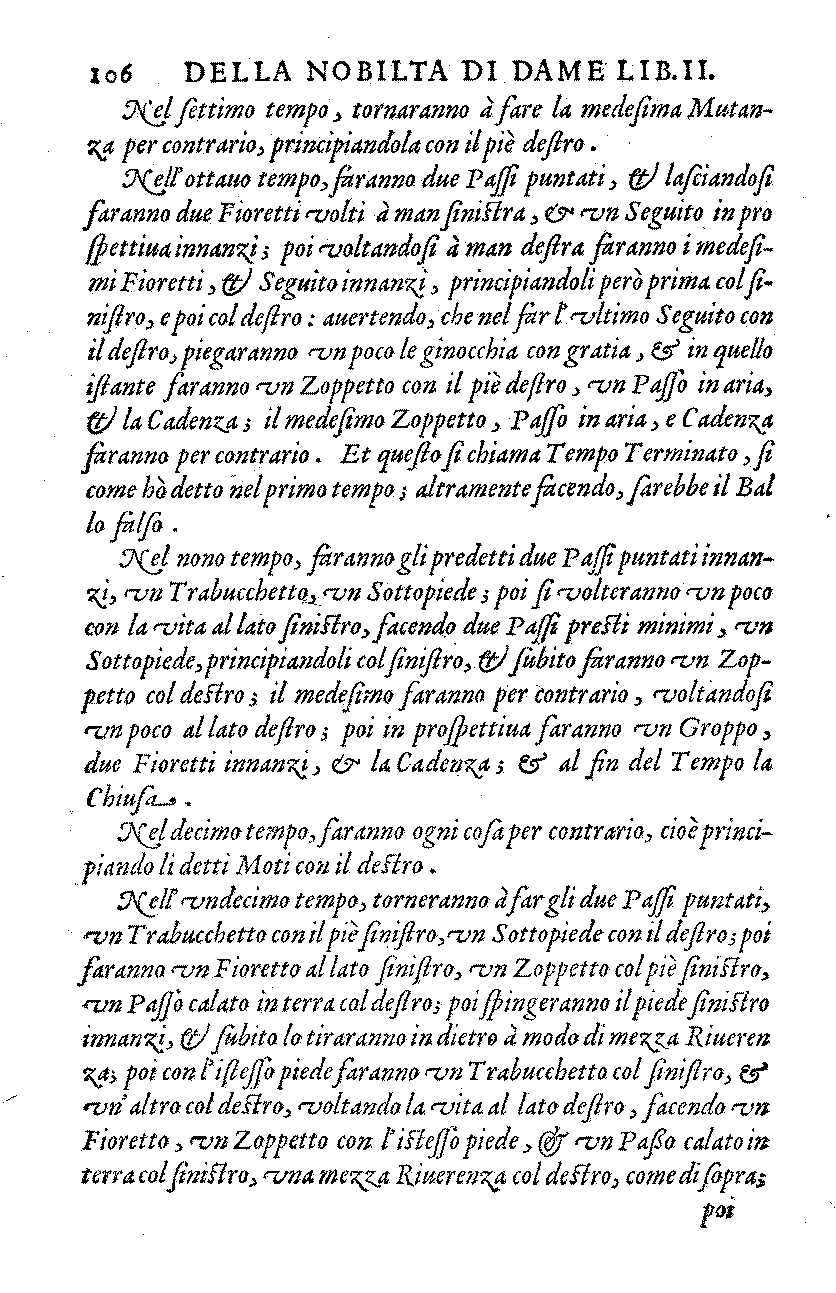 106 DELLA NOBILTA DI DAME LIB. II.
Nel ſettimo tempo, tornaranno à fare la medeſima Mutan-
za per contrario, principiandola con il piè deſtro.
Nell'ottauo tempo, faranno due Paſſi puntati, & laſciandoſi
faranno due Fioretti volti à man ſiniſtra, & vn Seguito in pro
ſpettiua innanzi; poi voltandoſi à man deſtra faranno i medeſi-
mi Fioretti, & Seguito innanzi, principiandoli però prima col ſi-
niſtro, e poi col deſtro: auertendo, che nel far l'vltimo Seguito con
il deſtro, piegaranno vn poco le ginocchia con gratia, & in quello
iſtante faranno vn Zoppetto con il piè deſtro, vn Paſſo in aria,
& la Cadenza; il medeſimo Zoppetto, Paſſo in aria, e Cadenza
faranno per contrario. Et queſto ſi chiama Tempo Terminato, ſi
come hò detto nel primo tempo; altramente facendo, ſarebbe il Bal
lo falſo.
Nel nono tempo, faranno gli predetti due Paſſi puntati innan-
zi, vn Trabucchetto, vn Sottopiede; poi ſi volteranno vn poco
con la vita al lato ſiniſtro, facendo due Paſſi preſti minimi, vn
Sottopiede, principiandoli col ſiniſtro, & ſubito faranno vn Zop-
petto col deſtro; il medeſimo faranno per contrario, voltandoſi
vn poco al lato deſtro; poi in proſpettiua faranno vn Groppo,
due Fioretti innanzi, & la Cadenza; & al fin del Tempo la
Chiuſa.
Nel decimo tempo, faranno ogni coſa per contrario, cioè princi-
piando li detti Moti con il deſtro.
Nell'vndecimo tempo, torneranno à far gli due Paſſi puntati,
vn Trabucchetto con il piè ſiniſtro, vn Sottopiede con il deſtro; poi
faranno vn Fioretto al lato ſiniſtro, vn Zoppetto col piè ſiniſtro,
vn Paſſo calato in terra col deſtro; poi ſpingeranno il piede ſiniſtro
innanzi, & ſubito lo tiraranno in dietro à modo di mezza Riueren
za; poi con l'iſteſſo piede faranno vn Trabucchetto col ſiniſtro, &
vn'altro col deſtro, voltando la vita al lato deſtro, facendo vn
Fioretto, vn Zoppetto con l'iſteſſo piede, & vn Paßo calato in
terra col ſiniſtro, vna mezza Riuerenza col deſtro, come di ſopra;
poi